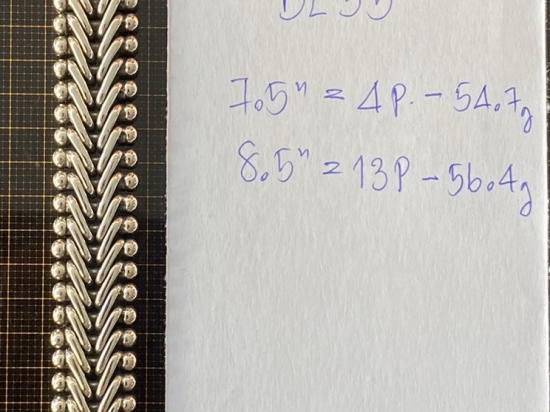 7.5" = 4P. - 54.7g
8.5" = 13P - 56.4g